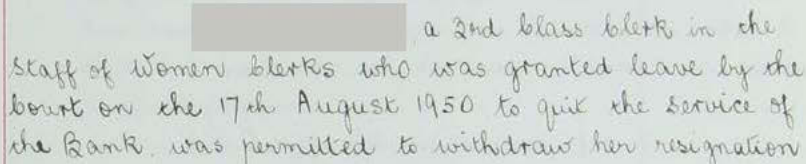 a 2nd Class Clerk in the
Staff of Women Clerks who was granted leave by the
Court on the 17th August 1950 to quit the Service of
the Bank. was permitted to withdraw her resignation